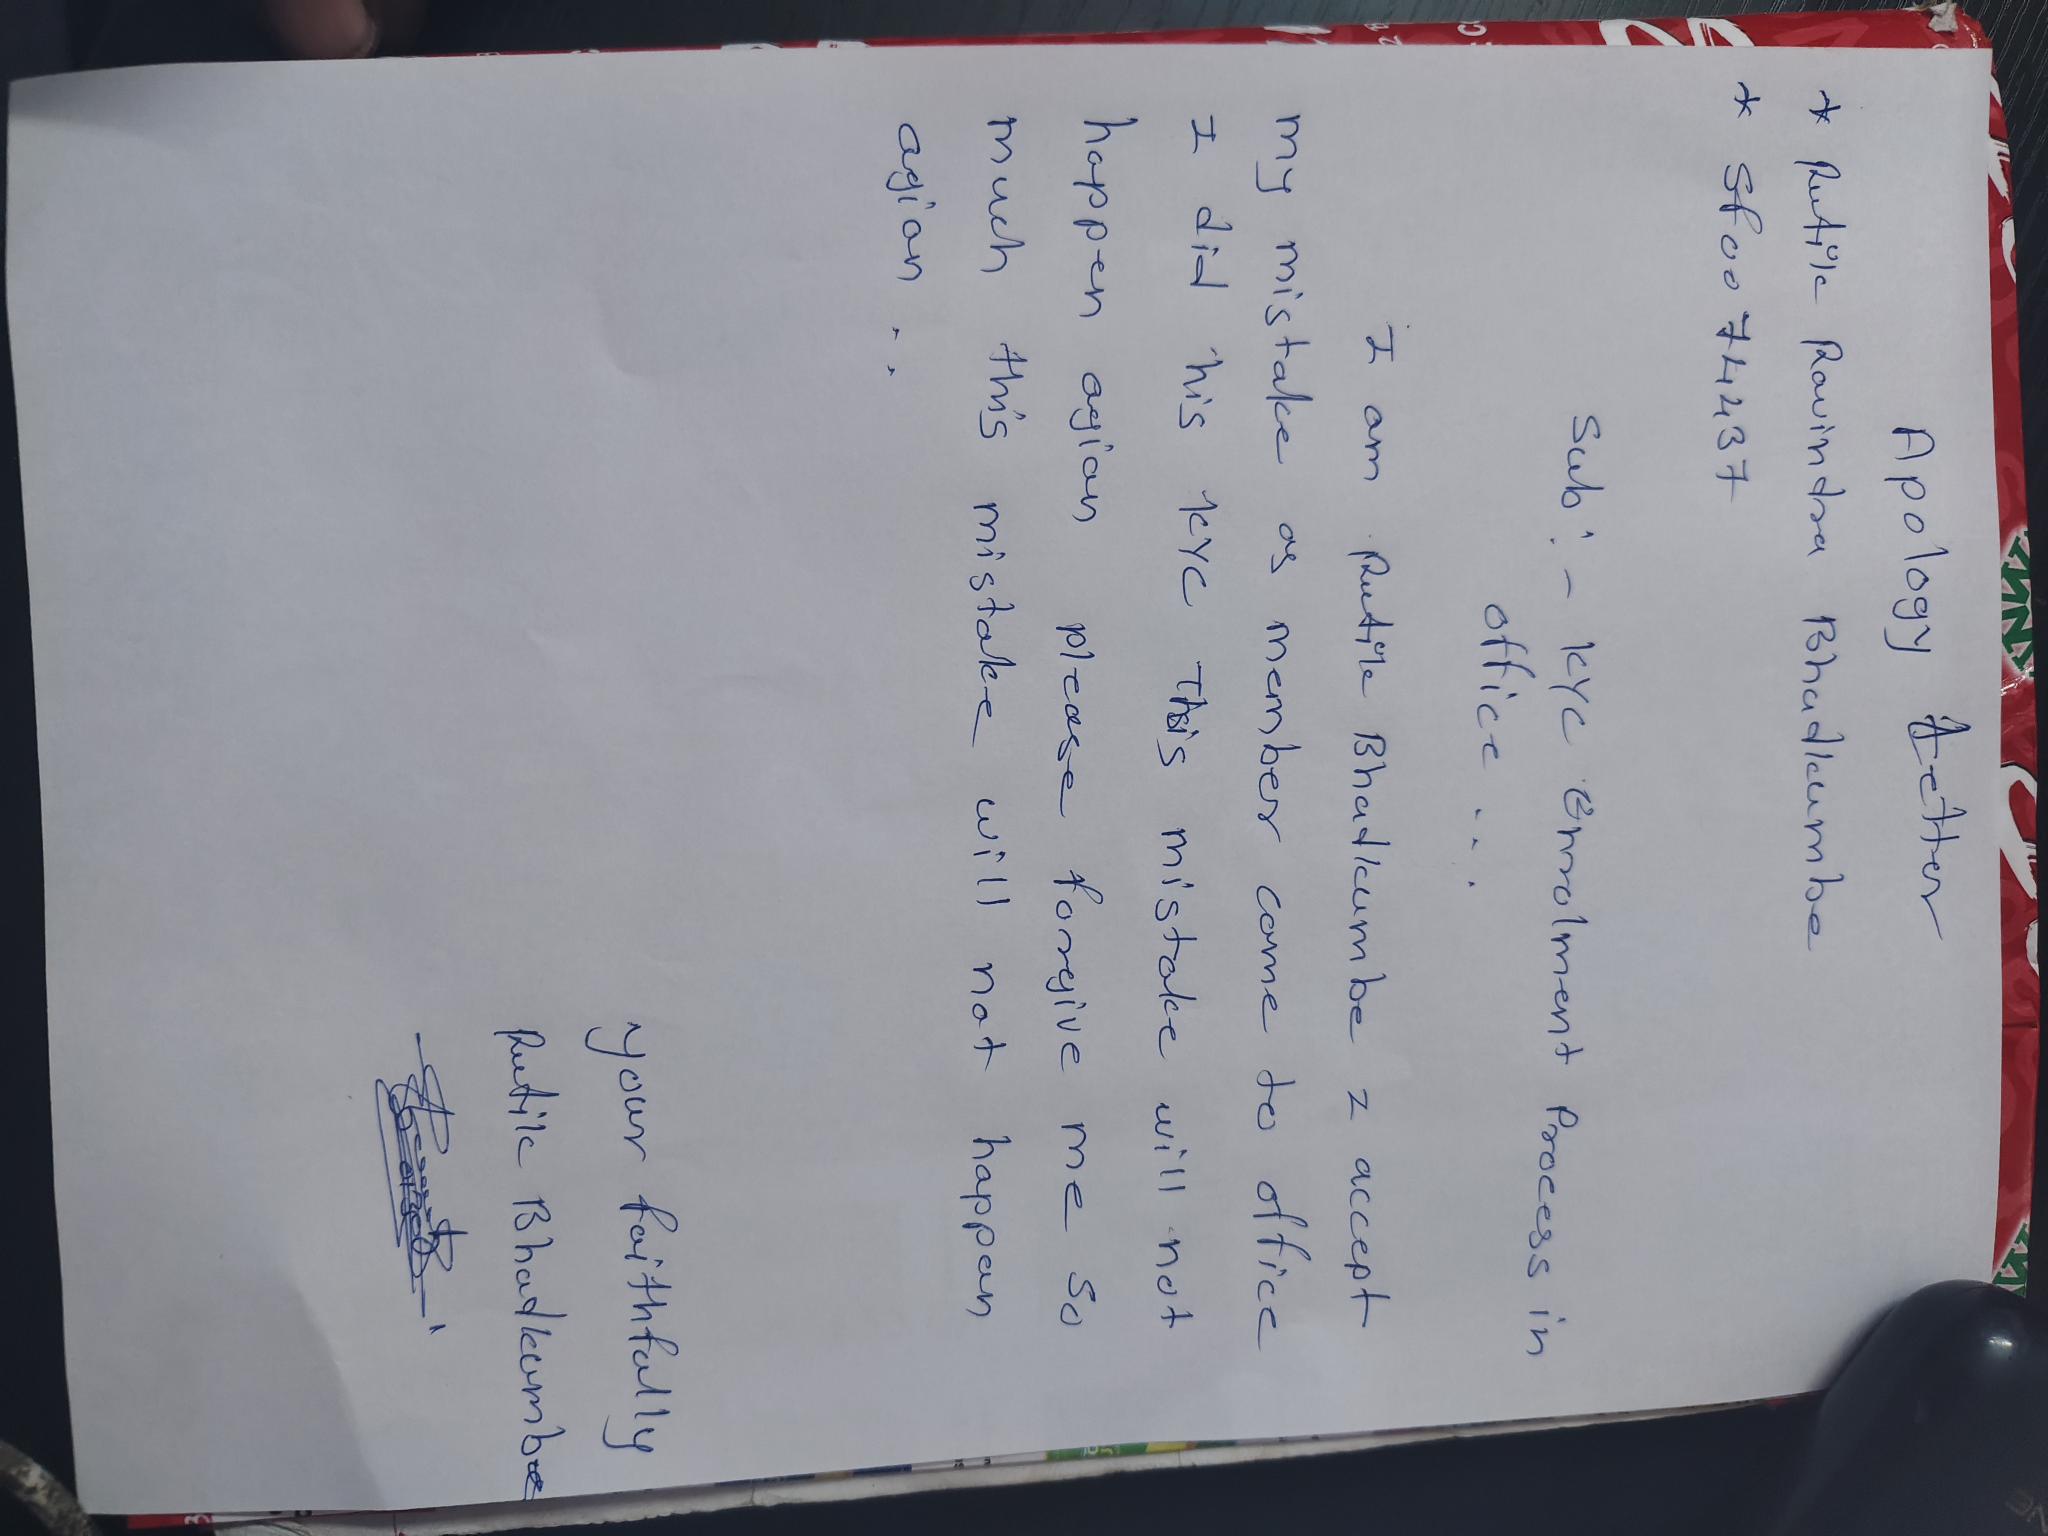 Apology Letter
* Rutik Ravindra Bhadkumbe
* Sf0074437
Sub :- KYC Enrolment Process in
office ...
I am Rutik Bhadkumbe I accept
my mistake as member come to office
I did his KYC This mistake will not
happen agian please forgive me so
much this mistake will not happan
agian ..
your faithfully
Rutik Bhadkumbe